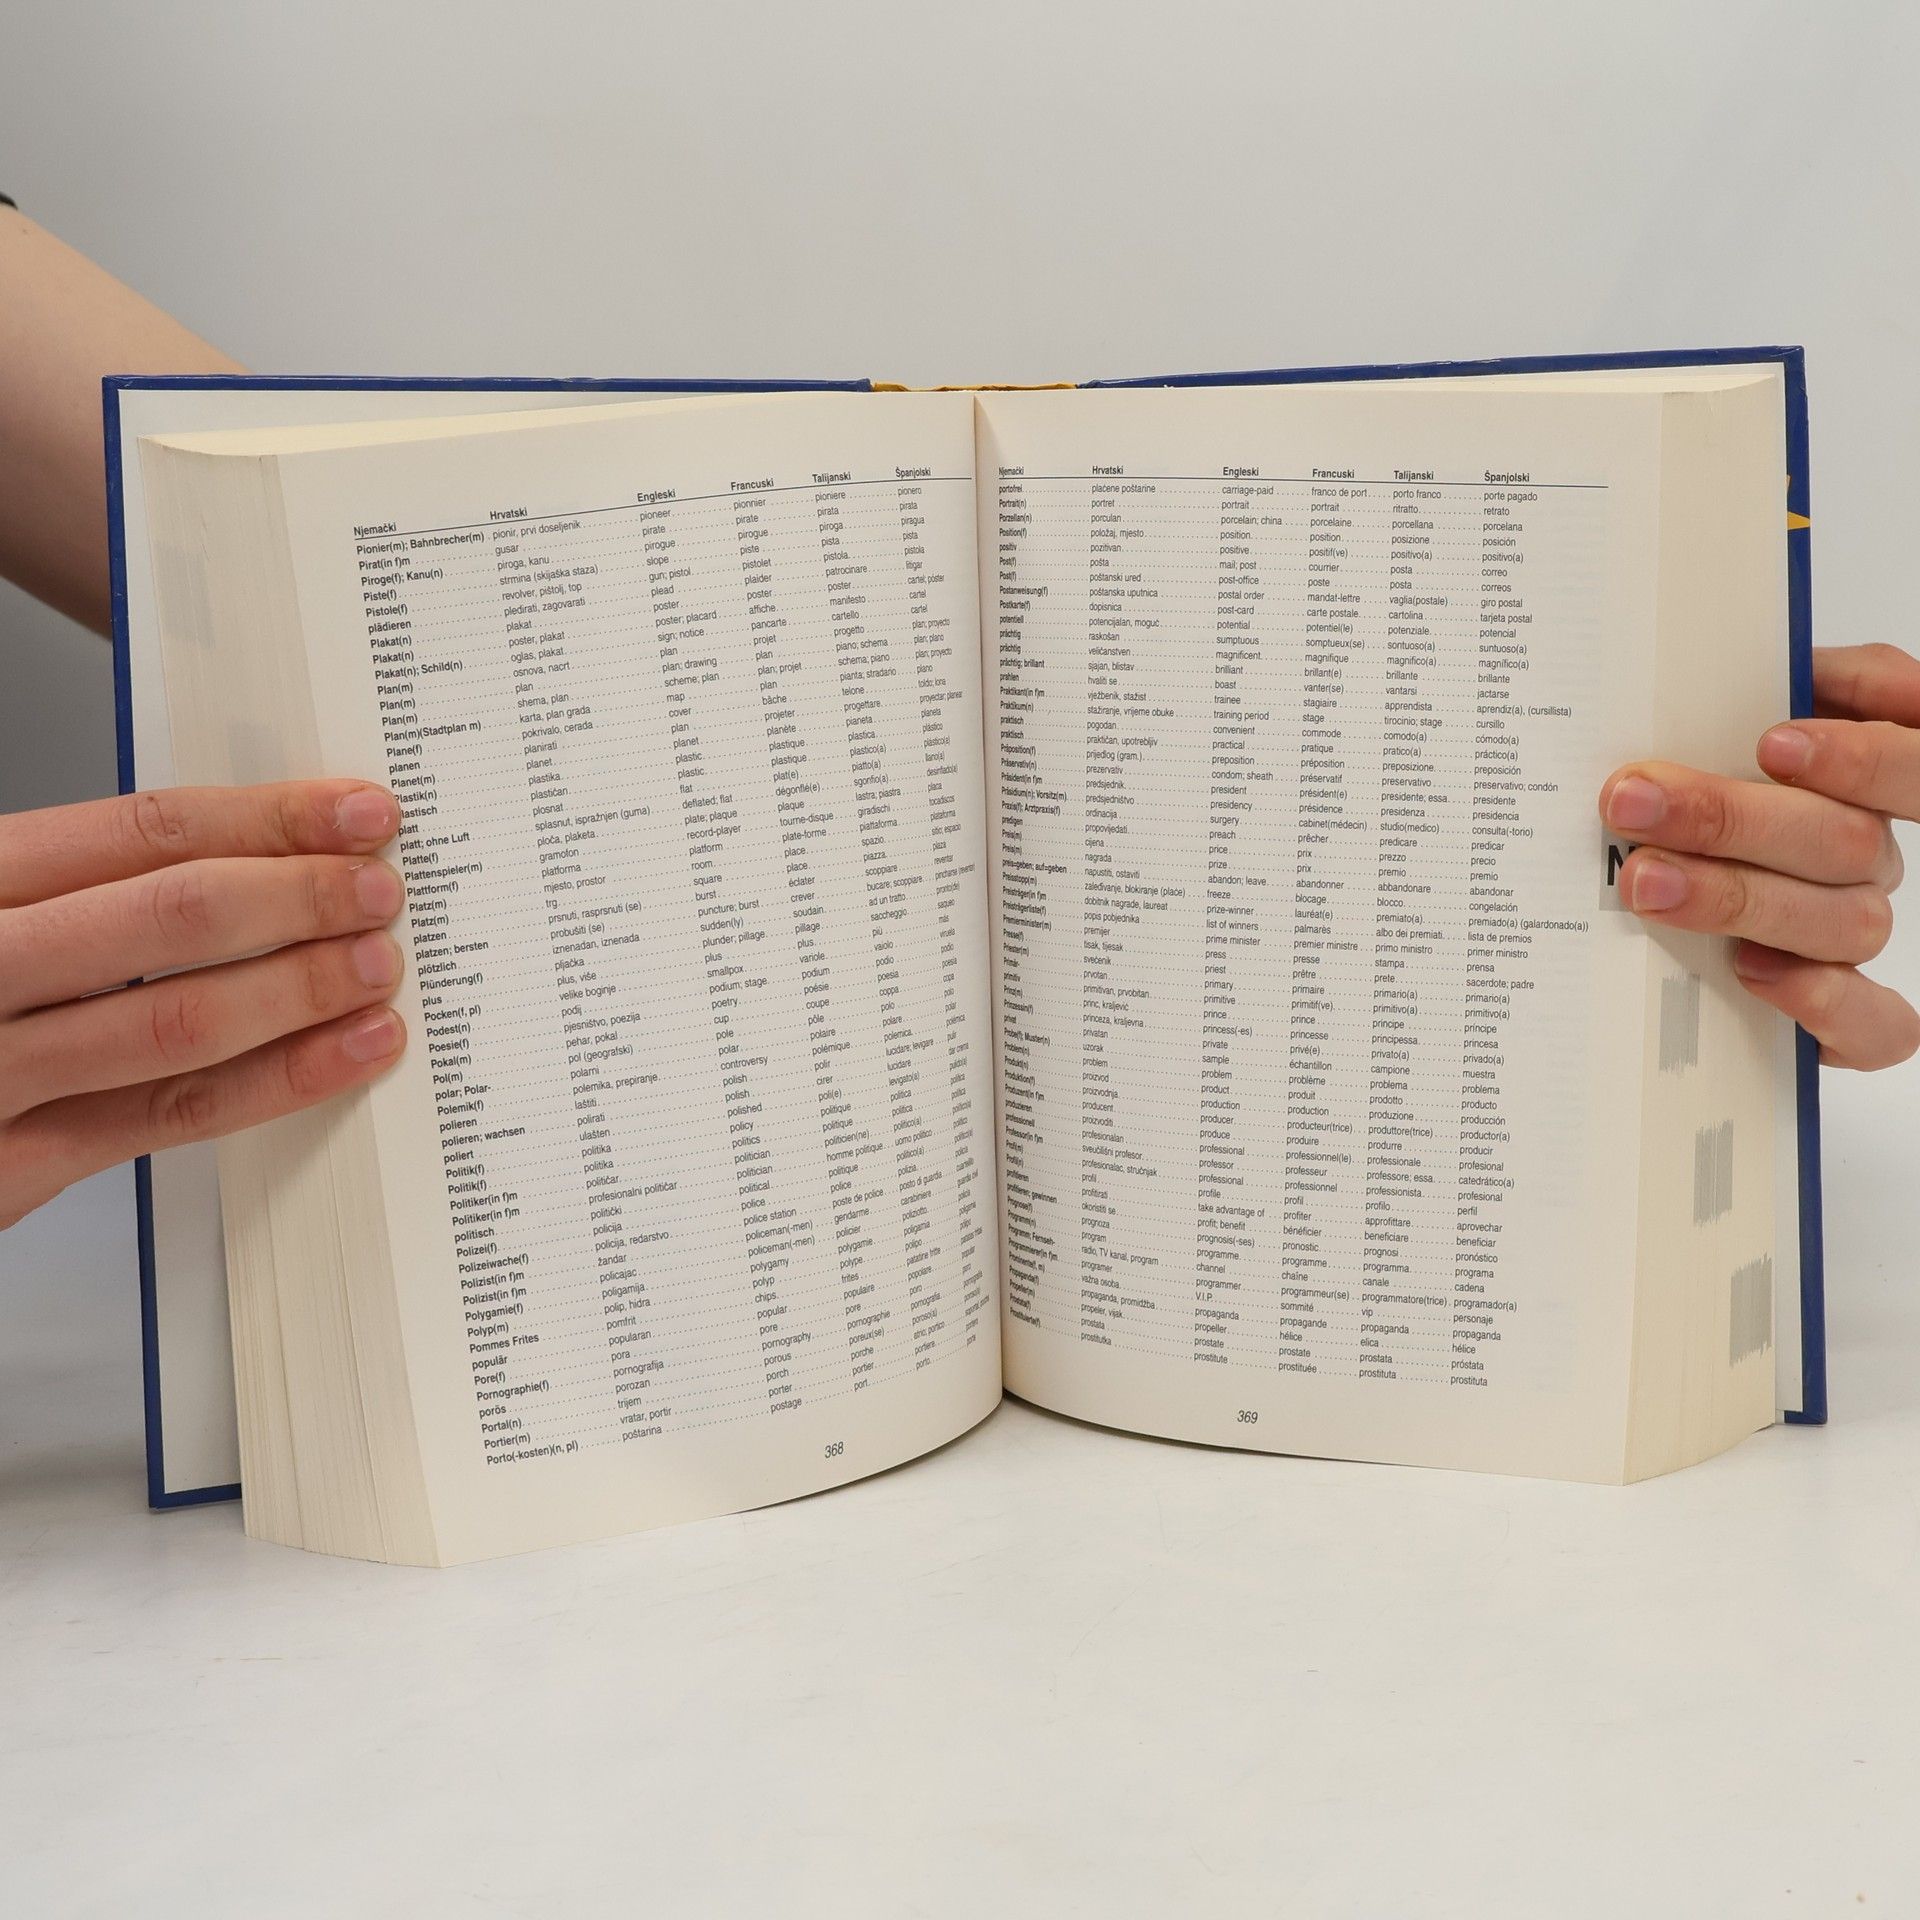 Njemački Hrvatski Engleski Francuski Talijanski Španjolski
Pionier(m); Bahnbrecher(m) pionir, prvi doseljenik pioneer pionnier pioniere pionero
Pirat(in f)m gusar pirate pirate pirata pirata
Piroge(f); Kanu(n) piroga, kanu pirogue pirogue piroga piragua
Piste(f) strmina (skijaška staza) slope piste pista pista
Pistole(f) revolver, pištolj, top gun; pistol pistolet pistola pistola
plädieren pledirati, zagovarati plead plaider patrocinare litigar
Plakat(n) plakat poster poster poster cartel; póster
Plakat(n) poster, plakat poster; placard affiche manifesto cartel
Plakat(n); Schild(n) oglas, plakat sign; notice pancarte cartello cartel
Plan(m) osnova, nacrt plan projet progetto plan; proyecto
Plan(m) plan plan; drawing plan piano; schema plan; plano
Plan(m) shema, plan scheme; plan plan; projet schema; piano plan; proyecto
Plan(m)(Stadtplan m) karta, plan grada map plan pianta; stradario plano
Plane(f) pokrivalo, cerada cover bâche telone toldo; lona
planen planirati plan projeter progettare proyectar; planear
Planet(m) planet planet planète pianeta planeta
Plastik(n) plastika plastic plastique plastica plástico
lastisch plastičan plastic plastique plastico(a) plástico(a)
platt plosnat flat plat(e) piatto(a) llano(a)
platt; ohne Luft splasnut, ispražnjen (guma) deflated; flat dégonflé(e) sgonfio(a) desinflado(a)
Platte(f) ploča, plaketa plate; plaque plaque lastra; piastra placa
Plattenspieler(m) gramofon record-player tourne-disque giradischi tocadiscos
Plattform(f) platforma platform plate-forme piattaforma plataforma
Platz(m) mjesto, prostor room place spazio sitio; espacio
Platz(m) trg square place piazza plaza
platzen prsnuti, rasprsnuti (se) burst éclater scoppiare reventar
platzen; bersten probušiti (se) puncture; burst crever bucare; scoppiare pincharse (reventar)
plötzlich iznenadan, iznenada sudden(ly) soudain ad un tratto pronto(de)
Plünderung(f) pljačka plunder; pillage pillage saccheggio saqueo
plus plus, više plus plus più más
Pocken(f, pl) velike boginje smallpox variole vaiolo viruela
Podest(n) podij podium; stage podium podio podio
Poesie(f) pjesništvo, poezija poetry poésie poesia poesía
Pokal(m) pehar, pokal cup coupe coppa copa
Pol(m) pol (geografski) pole pôle polo polo
polar; Polar- polarni polar polaire polare polar
Polemik(f) polemika, prepiranje controversy polémique polemica polémica
polieren laštiti polish polir lucidare; levigare pulir
polieren; wachsen polirati polish cirer lucidare dar crema
poliert ulašten polished poli(e) levigato(a) pulido(a)
Politik(f) politika policy politique politica política
Politik(f) politika politics politique politica política
Politiker(in f)m političar politician politicien(ne) politico(a) político(a)
Politiker(in f)m profesionalni političar politician homme politique uomo politico político
politisch politički political politique politico(a) político(a)
Polizei(f) policija police police polizia policía
Polizeiwache(f) policija, redarstvo police station poste de police posto di guardia cuartelillo
Polizist(in f)m žandar policeman(-men) gendarme carabiniere guardia civil
Polizist(in f)m policajac policeman(-men) policier poliziotto policía
Polygamie(f) poligamija polygamy polygamie poligamia poligamia
Polyp(m) polip, hidra polyp polype polipo pólipo
Pommes Frites pomfrit chips frites patatine fritte patatas fritas
populär popularan popular populaire popolare popular
Pore(f) pora pore pore poro poro
Pornographie(f) pornografija pornography pornographie pornografia pornografía
porös porozan porous poreux(se) poroso(a) poroso(a)
Portal(n) trijem porch porche atrio; portico
Portier(m) vratar, portir porter portier portiere portero
Porto(-kosten)(n, pl) poštarina postage port porto porte
368
Njemački Hrvatski Engleski Francuski Talijanski Španjolski
portofrei plaćene poštarine carriage-paid franco de port porto franco porte pagado
Portrait(n) portret portrait portrait ritratto retrato
Porzellan(n) porculan porcelain; china porcelaine porcellana porcelana
Position(f) položaj, mjesto position position posizione posición
positiv pozitivan positive positif(ve) positivo(a) positivo(a)
Post(f) pošta mail; post courrier posta correo
Post(f) poštanski ured post-office poste posta correos
Postanweisung(f) poštanska uputnica postal order mandat-lettre vaglia(postale) giro postal
Postkarte(f) dopisnica post-card carte postale cartolina tarjeta postal
potentiell potencijalan, moguć potential potentiel(le) potenziale potencial
prächtig raskošan sumptuous somptueux(se) sontuoso(a) suntuoso(a)
prächtig veličanstven magnificent magnifique magnifico(a) magnífico(a)
prächtig; brillant sjajan, blistav brilliant brillant(e) brillante brillante
prahlen hvaliti se boast vanter(se) vantarsi jactarse
Praktikant(in f)m vježbenik, stažist trainee stagiaire apprendista aprendiz(a), (cursillista)
Praktikum(n) stažiranje, vrijeme obuke training period stage tirocinio; stage cursillo
praktisch pogodan convenient commode comodo(a) cómodo(a)
praktisch praktičan, upotrebljiv practical pratique pratico(a) práctico(a)
Präposition(f) prijedlog (gram.) preposition préposition preposizione preposición
Präservativ(n) prezervativ condom; sheath préservatif preservativo preservativo; condón
Präsident(in f)m predsjednik president président(e) presidente; essa presidente
Präsidium(n); Vorsitz(m) predsjedništvo presidency présidence presidenza presidencia
Praxis(f); Arztpraxis(f) ordinacija surgery cabinet(médecin) studio(medico) consulta(-torio)
predigen propovijedati preach prêcher predicare predicar
Preis(m) cijena price prix prezzo precio
Preis(m) nagrada prize prix premio premio
preisgeben; aufgeben napustiti, ostaviti abandon; leave abandonner abbandonare abandonar
Preisstopp(m) zaleđivanje, blokiranje (plaće) freeze blocage blocco congelación
Preisträger(in f)m dobitnik nagrade, laureat prize-winner lauréat(e) premiato(a) premiado(a) (galardonado(a))
Preisträgerliste(f) popis pobjednika list of winners palmarès albo dei premiati lista de premios
Premierminister(m) premijer prime minister premier ministre primo ministro primer ministro
Presse(f) tisak, tijesak press presse stampa prensa
Priester(m) svećenik priest prêtre prete sacerdote; padre
Primär- prvotan primary primaire primario(a) primario(a)
primitiv primitivan, prvobitan primitive primitif(ve) primitivo(a) primitivo(a)
Prinz(m) princ, kraljević prince prince principe príncipe
Prinzessin(f) princeza, kraljevna princess(-es) princesse principessa princesa
privat privatan private privé(e) privato(a) privado(a)
Probe(f); Muster(n) uzorak sample échantillon campione muestra
Problem(n) problem problem problème problema problema
Produkt(n) proizvod product produit prodotto producto
Produktion(f) proizvodnja production production produzione producción
Produzent(in f)m producent producer producteur(trice) produttore(trice) productor(a)
produzieren proizvoditi produce produire produrre producir
professionell profesionalan professional professionnel(le) professionale profesional
Professor(in f)m sveučilišni profesor professor professeur professore; essa catedrático(a)
Profi(m) profesionalac, stručnjak professional professionnel professionista profesional
Profil(n) profil profile profil profilo perfil
profitieren profitirati take advantage of profiter approfittare aprovechar
profitieren; gewinnen okoristiti se profit; benefit bénéficier beneficiare beneficiar
Prognose(f) prognoza prognosis(-ses) pronostic prognosi pronóstico
Programm(n) program programme programme programma programa
Programm; Fernseh- radio, TV kanal, program channel chaîne canale cadena
Programmierer(in f)m programer programmer programmeur(se) programmatore(trice) programador(a)
Prominente(f, m) važna osoba V.I.P. sommité vip personaje
Propaganda(f) propaganda, promidžba propaganda propagande propaganda propaganda
Propeller(m) propeler, vijak propeller hélice elica hélice
Prostata(f) prostata prostate prostate prostata próstata
Prostituierte(f) prostitutka prostitute prostituée prostituta prostituta
369
N